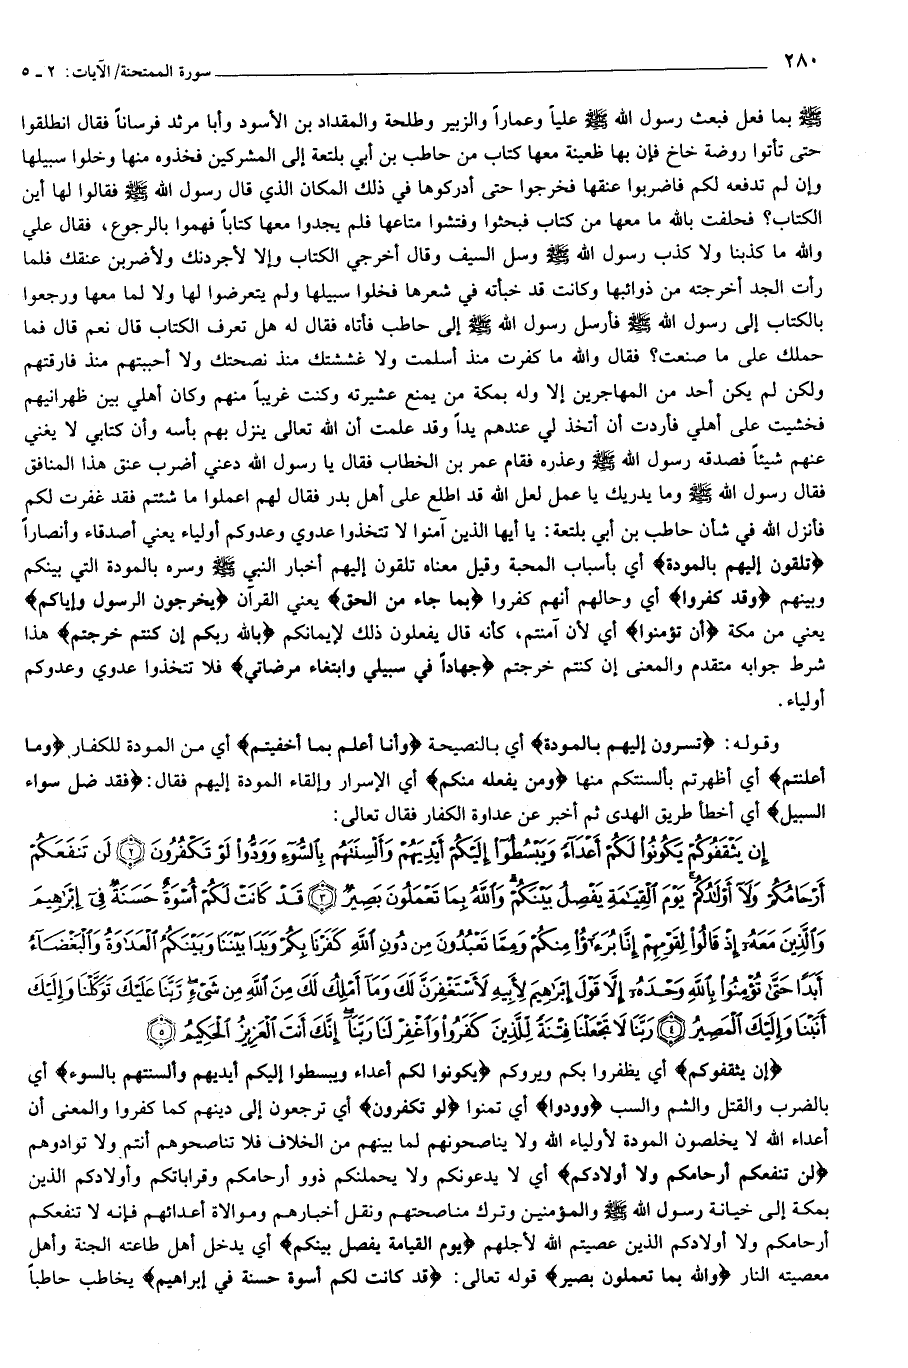 ٢٨٠ سورة الممتحنة/ الآيات: ٢ - ٥
ﷺ بما فعل فبعث رسول الله ﷺ علياً وعماراً والزبير وطلحة والمقداد بن الأسود وأبا مرثد فرساناً فقال انطلقوا
حتى تأتوا روضة خاخ فإن بها ظعينة معها كتاب من حاطب بن أبي بلتعة إلى المشركين فخذوه منها وخلوا سبيلها
وإن لم تدفعه لكم فاضربوا عنقها فخرجوا حتى أدركوها في ذلك المكان الذي قال رسول الله ﷺ فقالوا لها أين
الكتاب؟ فحلفت بالله ما معها من كتاب فبحثوا وفتشوا متاعها فلم يجدوا معها كتاباً فهموا بالرجوع، فقال علي
والله ما كذبنا ولا كذب رسول الله ﷺ وسل السيف وقال أخرجي الكتاب وإلا لأجردنك ولأضربن عنقك فلما
رأت الجد أخرجته من ذوائبها وكانت قد خبأته في شعرها فخلوا سبيلها ولم يتعرضوا لها ولا لما معها ورجعوا
بالكتاب إلى رسول الله ﷺ فأرسل رسول الله ﷺ إلى حاطب فأتاه فقال له هل تعرف الكتاب قال نعم قال فما
حملك على ما صنعت؟ فقال والله ما كفرت منذ أسلمت ولا غششتك منذ نصحتك ولا أحببتهم منذ فارقتهم
ولكن لم يكن أحد من المهاجرين إلا وله بمكة من يمنع عشيرته وكنت غريباً منهم وكان أهلي بين ظهرانيهم
فخشيت على أهلي فأردت أن أتخذ لي عندهم يداً وقد علمت أن الله تعالى ينزل بهم بأسه وأن كتابي لا يغني
عنهم شيئاً فصدقه رسول الله ﷺ وعذره فقام عمر بن الخطاب فقال يا رسول الله دعني أضرب عنق هذا المنافق
فقال رسول الله ﷺ وما يدريك يا عمل لعل الله قد اطلع على أهل بدر فقال لهم اعملوا ما شئتم فقد غفرت لكم
فأنزل الله في شأن حاطب بن أبي بلتعة: يا أيها الذين آمنوا لا تتخذوا عدوي وعدوكم أولياء يعني أصدقاء وأنصاراً
﴿تلقون إليهم بالمودة﴾ أي بأسباب المحبة وقيل معناه تلقون إليهم أخبار النبي ﷺ وسره بالمودة التي بينكم
وبينهم ﴿وقد كفروا﴾ أي وحالهم أنهم كفروا ﴿بما جاء من الحق﴾ يعني القرآن ﴿يخرجون الرسول وإياكم﴾
يعني من مكة ﴿أن تؤمنوا﴾ أي لأن آمنتم، كأنه قال يفعلون ذلك لإيمانكم ﴿بالله ربكم إن كنتم خرجتم﴾ هذا
شرط جوابه متقدم والمعنى إن كنتم خرجتم ﴿جهاداً في سبيلي وابتغاء مرضاتي﴾ فلا تتخذوا عدوي وعدوكم
أولياء.
وقوله: ﴿تسرون إليهم بالمودة﴾ أي بالنصيحة ﴿وأنا أعلم بما أخفيتم﴾ أي من المودة للكفار ﴿وما
أعلنتم﴾ أي أظهرتم بألسنتكم منها ﴿ومن يفعله منكم﴾ أي الإسرار وإلقاء المودة إليهم فقال: ﴿فقد ضل سواء
السبيل﴾ أي أخطأ طريق الهدى ثم أخبر عن عداوة الكفار فقال تعالى:
إِن يَثْقَفُوكُمْ يَكُونُوا۟ لَكُمْ أَعْدَآءً وَيَبْسُطُوٓا۟ إِلَيْكُمْ أَيْدِيَهُمْ وَأَلْسِنَتَهُم بِٱلسُّوٓءِ وَوَدُّوا۟ لَوْ تَكْفُرُونَ ﴿٢﴾ لَن تَنفَعَكُمْ
أَرْحَامُكُمْ وَلَآ أَوْلَٰدُكُمْ ۚ يَوْمَ ٱلْقِيَٰمَةِ يَفْصِلُ بَيْنَكُمْ ۚ وَٱللَّهُ بِمَا تَعْمَلُونَ بَصِيرٌ ﴿٣﴾ قَدْ كَانَتْ لَكُمْ أُسْوَةٌ حَسَنَةٌ فِىٓ إِبْرَٰهِيمَ
وَٱلَّذِينَ مَعَهُۥٓ إِذْ قَالُوا۟ لِقَوْمِهِمْ إِنَّا بُرَءَٰٓؤُا۟ مِنكُمْ وَمِمَّا تَعْبُدُونَ مِن دُونِ ٱللَّهِ كَفَرْنَا بِكُمْ وَبَدَا بَيْنَنَا وَبَيْنَكُمُ ٱلْعَدَٰوَةُ وَٱلْبَغْضَآءُ
أَبَدًا حَتَّىٰ تُؤْمِنُوا۟ بِٱللَّهِ وَحْدَهُۥٓ إِلَّا قَوْلَ إِبْرَٰهِيمَ لِأَبِيهِ لَأَسْتَغْفِرَنَّ لَكَ وَمَآ أَمْلِكُ لَكَ مِنَ ٱللَّهِ مِن شَىْءٍ ۖ رَّبَّنَا عَلَيْكَ تَوَكَّلْنَا وَإِلَيْكَ
أَنَبْنَا وَإِلَيْكَ ٱلْمَصِيرُ ﴿٤﴾ رَبَّنَا لَا تَجْعَلْنَا فِتْنَةً لِّلَّذِينَ كَفَرُوا۟ وَٱغْفِرْ لَنَا رَبَّنَآ ۖ إِنَّكَ أَنتَ ٱلْعَزِيزُ ٱلْحَكِيمُ ﴿٥﴾
﴿إن يثقفوكم﴾ أي يظفروا بكم ويروكم ﴿يكونوا لكم أعداء ويبسطوا إليكم أيديهم وألسنتهم بالسوء﴾ أي
بالضرب والقتل والشم والسب ﴿وودوا﴾ أي تمنوا ﴿لو تكفرون﴾ أي ترجعون إلى دينهم كما كفروا والمعنى أن
أعداء الله لا يخلصون المودة لأولياء الله ولا يناصحونهم لما بينهم من الخلاف فلا تناصحوهم أنتم ولا توادوهم
﴿لن تنفعكم أرحامكم ولا أولادكم﴾ أي لا يدعونكم ولا يحملنكم ذوو أرحامكم وقراباتكم وأولادكم الذين
بمكة إلى خيانة رسول الله ﷺ والمؤمنين وترك مناصحتهم ونقل أخبارهم وموالاة أعدائهم فإنه لا تنفعكم
أرحامكم ولا أولادكم الذين عصيتم الله لأجلهم ﴿يوم القيامة يفصل بينكم﴾ أي يدخل أهل طاعته الجنة وأهل
معصيته النار ﴿والله بما تعملون بصير﴾ قوله تعالى: ﴿قد كانت لكم أسوة حسنة في إبراهيم﴾ يخاطب حاطباً